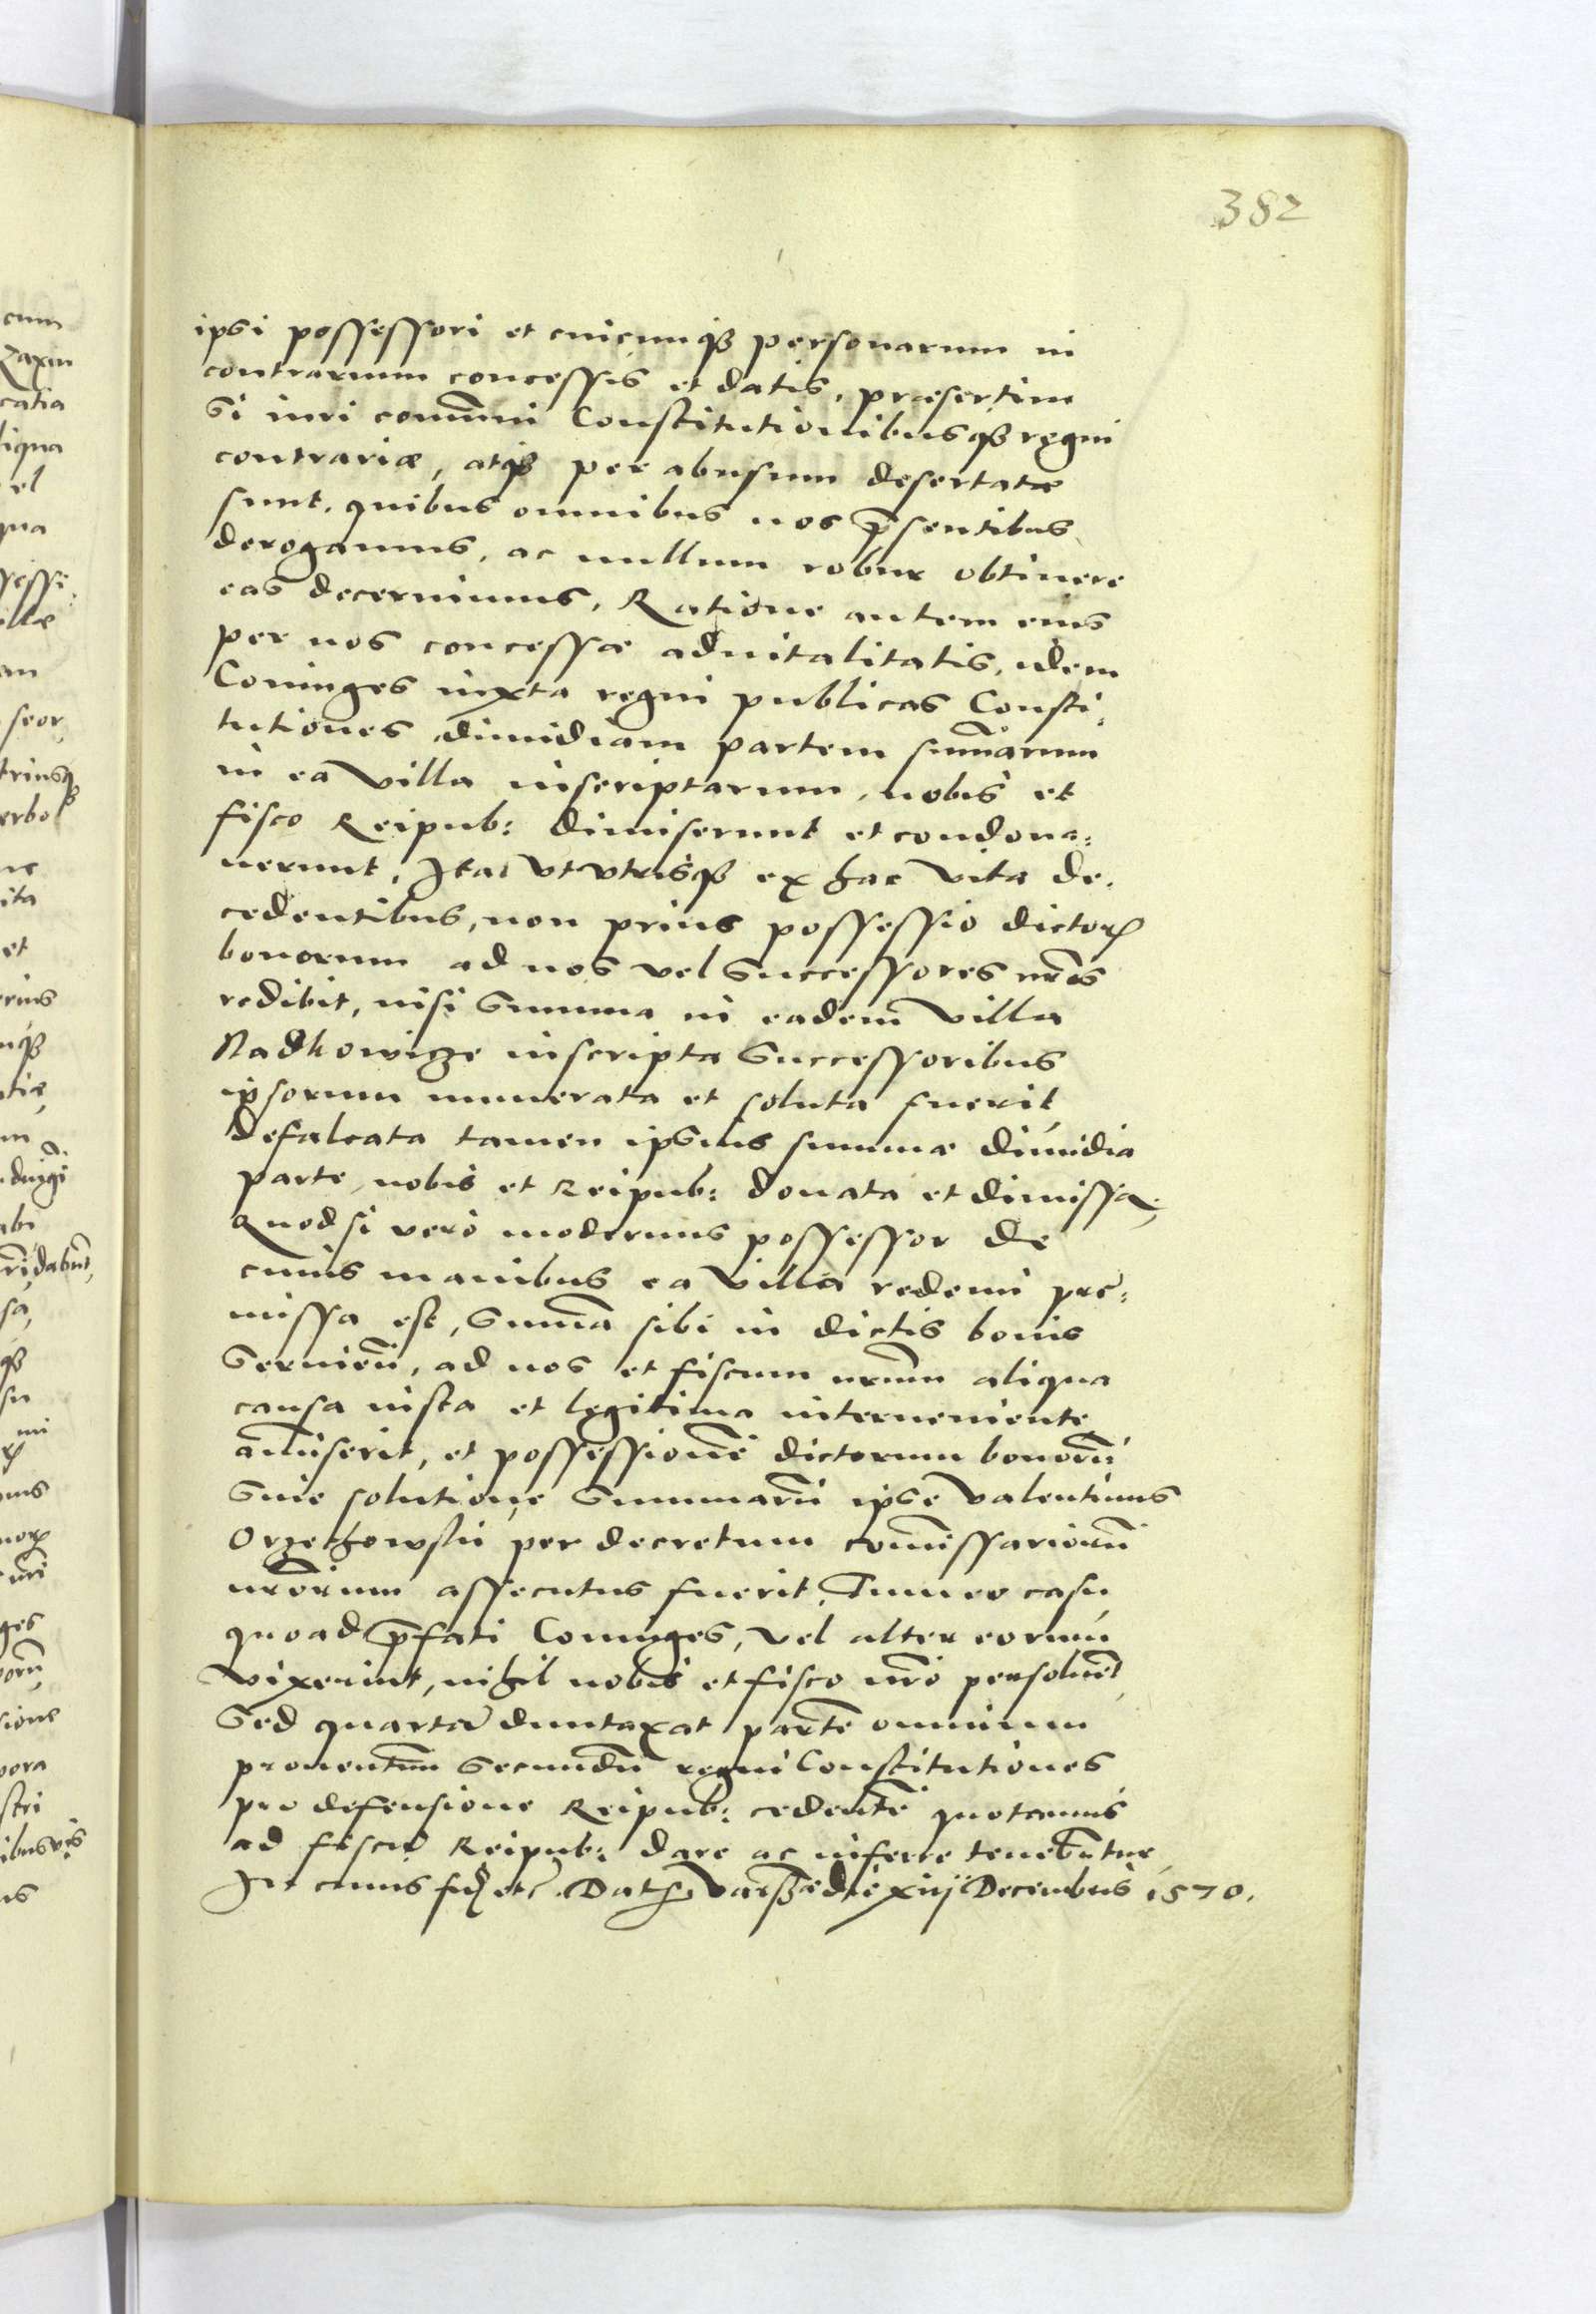 382
ipsi possessori et cuicunq3 personarum in
contrarium concessis et datis, præsertim
si iuri com̄uni Constitutionibusq3 regni
contrariæ, atq3 per abusum desertatæ
sunt, quibus omnibus nos p̄sentibus
derogamus, ac nullum robur obtinere
eas decernimus, Ratione autem eius
per nos concessæ aduitalitatis, idem
Coniuges iuxta regni publicas Consti:
tutiones dimidiam partem sum̄arum
in ea Villa inscriptarum, nobis et
fisco Reipub: dimiserunt et condona:
uerunt, Ita vt vtrisq3 ex hac vita de,
cedentibus, non prius possessio dictorꝝ
bonorum ad nos vel Successores nr̄os
redibit, nisi Summa in eadem Villa
Radkowicze inscripta Successoribus
ipsorum numerata et soluta fuerit
defalcata tamen ipsius summæ dimidia
parte, nobis et Reipub: donata et dimissa,
Quod si vero modernus possessor de
cuius manibus ea Villa redemi per:
missa est, Sum̄a sibi in dictis bonis
Seruien̄, ad nos et fiscum nr̄um aliqua
causa iusta et legitima interueniente
amiserit, et possessionē dictorum bonorū
Sine solutione Summarū ipse Valentinus
Orzechowski per decretum com̄issariorū
nr̄orum assecutus fuerit, Tum eo casu
quoad p̄fati Coniuges, vel alter eorum
Vixerint, nihil nobis et fisco nr̄o persoluēt
Sed quartā duntaxat partē omnium
prouentum secundū regni Constitutiones
pro defensione Reipub: cedentē quotannis
ad fiscū Reipub: dare ac inferre tenebūtur
In cuius fidē etc. Dat Varssæ die xiiij Decembris 1570.